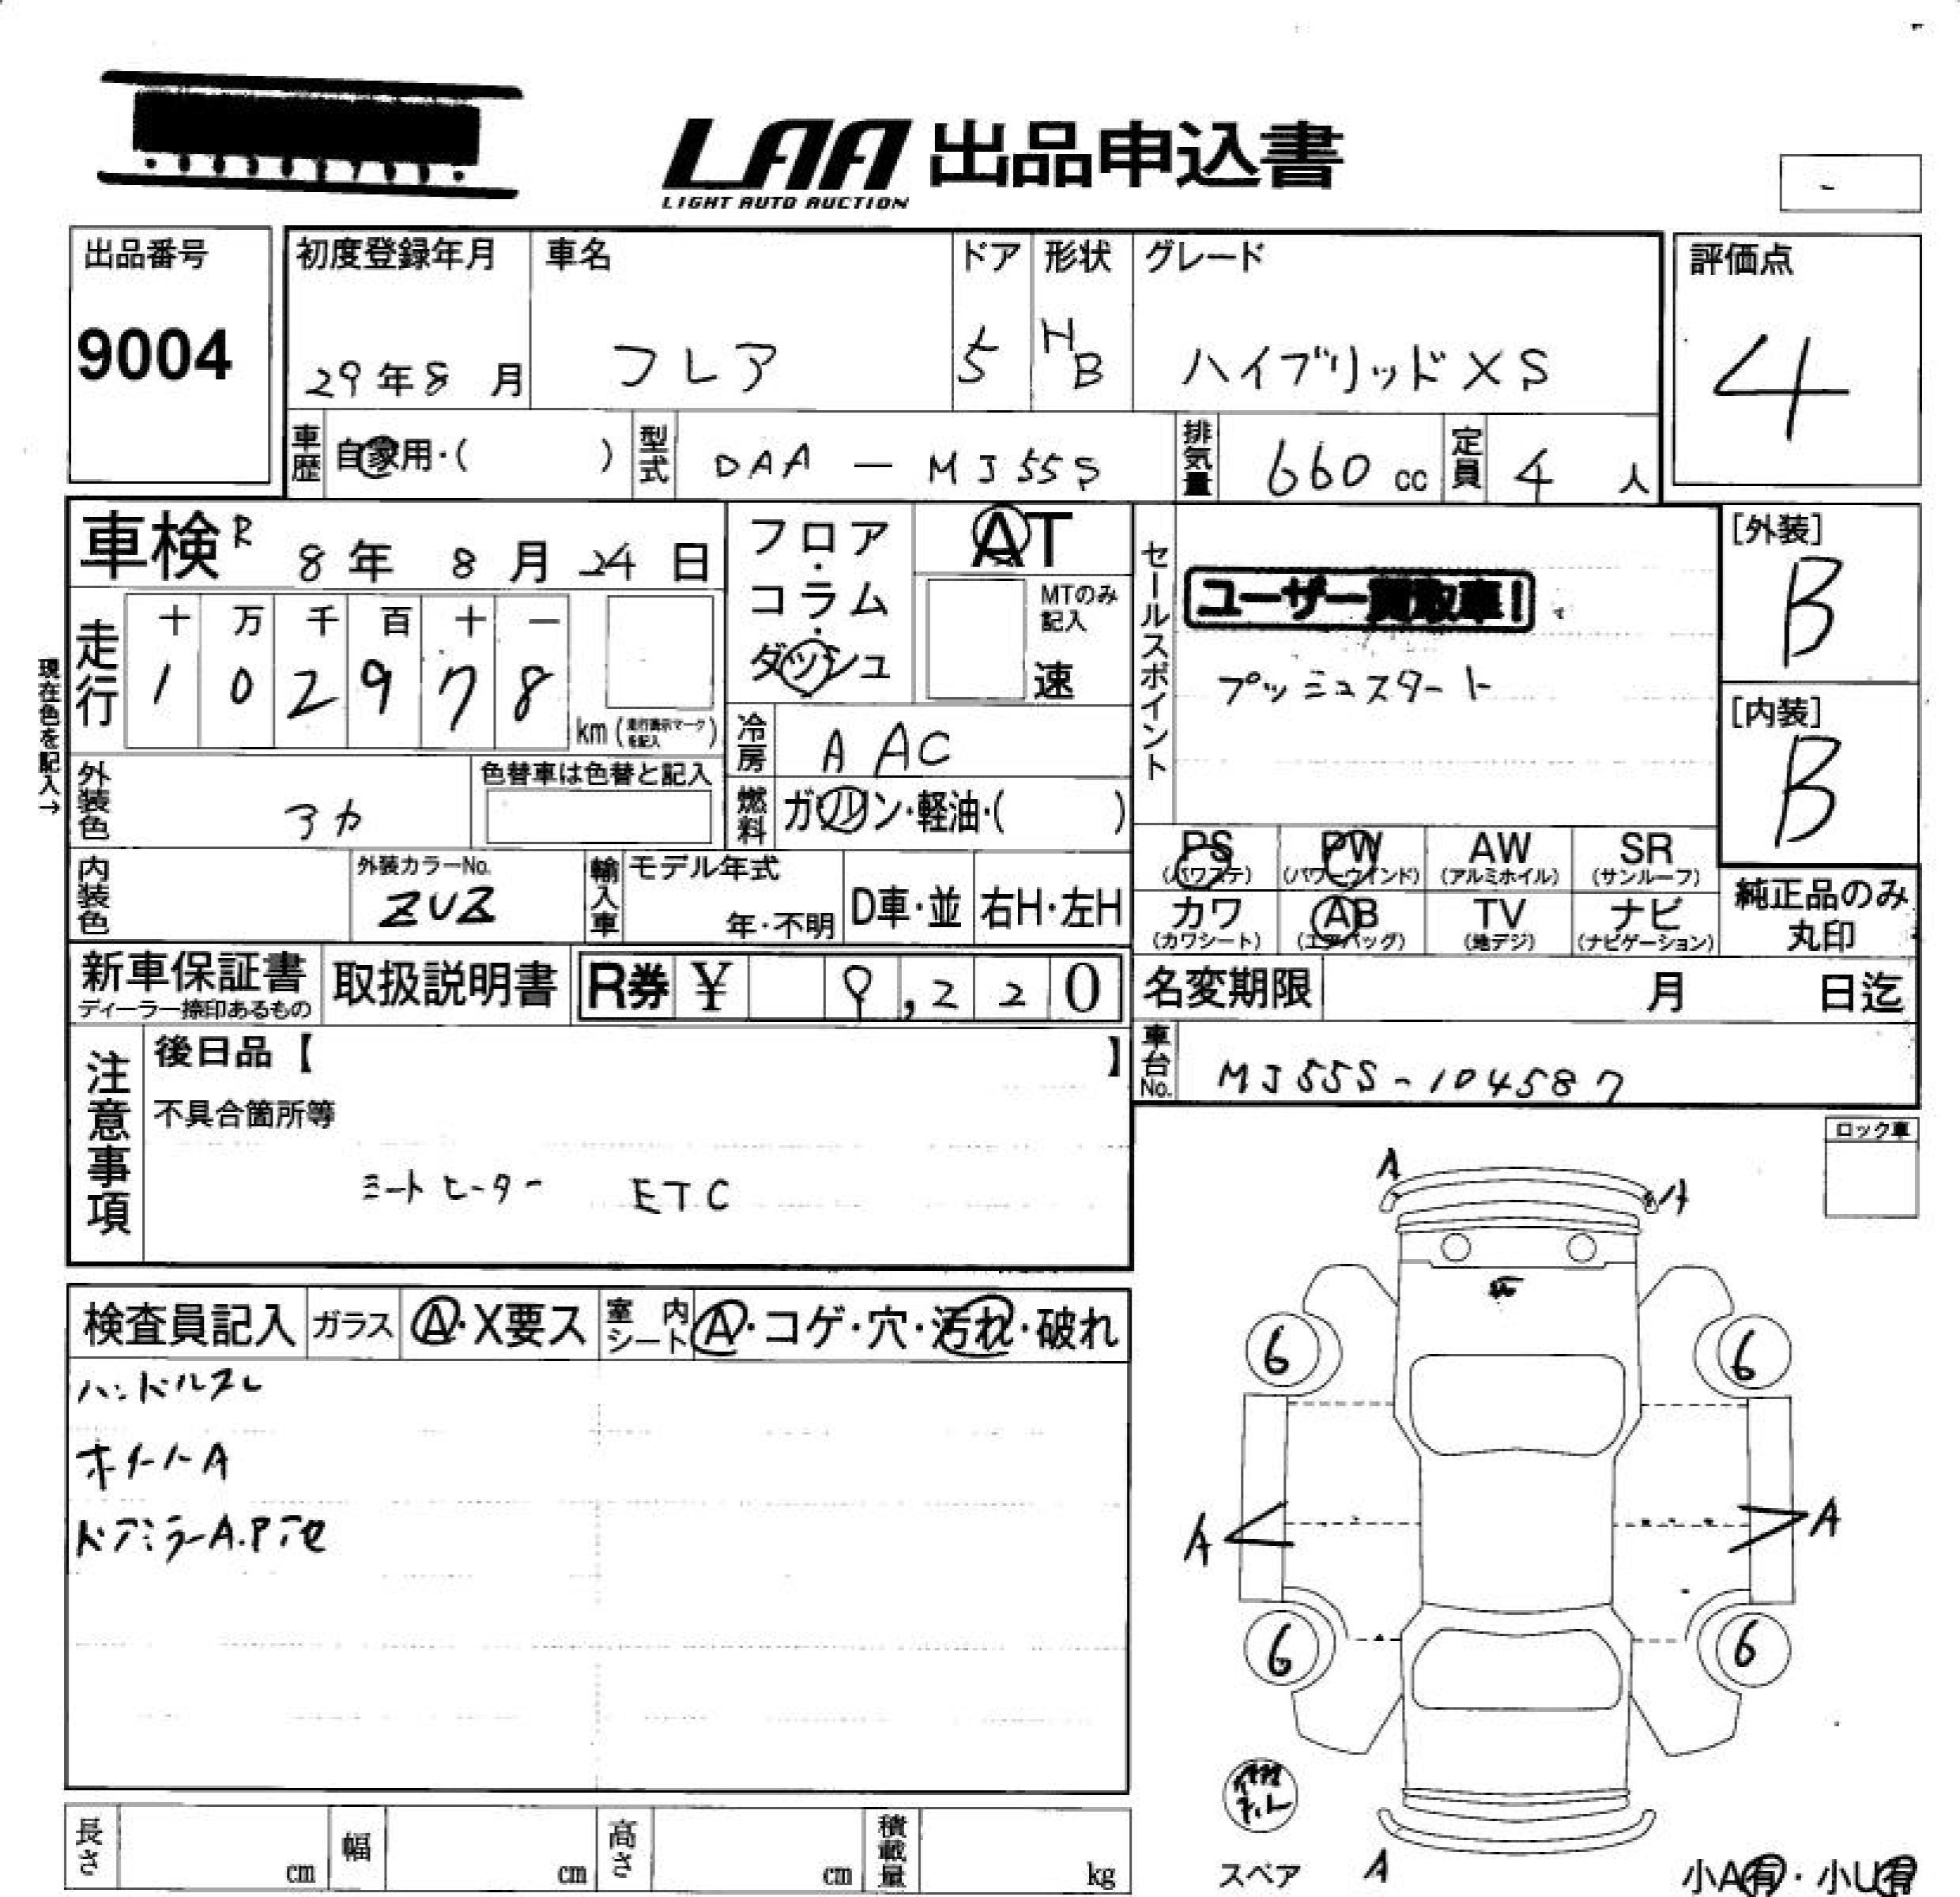 LAA 出品申込書
LIGHT AUTO AUCTION
-
出品番号
9004
初度登録年月
29年8月
車名
フレア
ドア
5
形状
HB
グレード
ハイブリッドXS
評価点
4
車歴
自家用・( )
型式
DAA - MJ55S
排気量
660 cc
定員
4 人
車検 R 8年 8月 24日
フロア・コラム・ダッシュ
AT
MTのみ記入
速
セールスポイント
ユーザー買取車!
プッシュスタート
[外装]
B
[内装]
B
現在色を記入→
走行
十 万 千 百 十 一
1 0 2 9 7 8
km (走行表示マークを記入)
冷房
AAC
燃料
ガソリン・軽油・( )
外装色
アカ
色替車は色替と記入
内装色
外装カラーNo.
ZUZ
輸入車
モデル年式
年・不明
D車・並
右H・左H
PS (パワステ)
PW (パワーウインド)
AW (アルミホイル)
SR (サンルーフ)
カワ (カワシート)
AB (エアバッグ)
TV (地デジ)
ナビ (ナビゲーション)
純正品のみ丸印
新車保証書
ディーラー捺印あるもの
取扱説明書
R券 ¥ 9,220
名変期限 月 日迄
車台No.
MJ55S-104587
注意事項
後日品【 】
不具合箇所等
シートヒーター ETC
ロック車
検査員記入
ガラス
A・X要ス
室内シート
A・コゲ・穴・汚れ・破れ
ハンドルスレ
ホイールA
ドアミラーA.P
A
A
6
6
A
A
6
6
スペア
A
小A有・小U有
長さ cm
幅 cm
高さ cm
積載量 kg